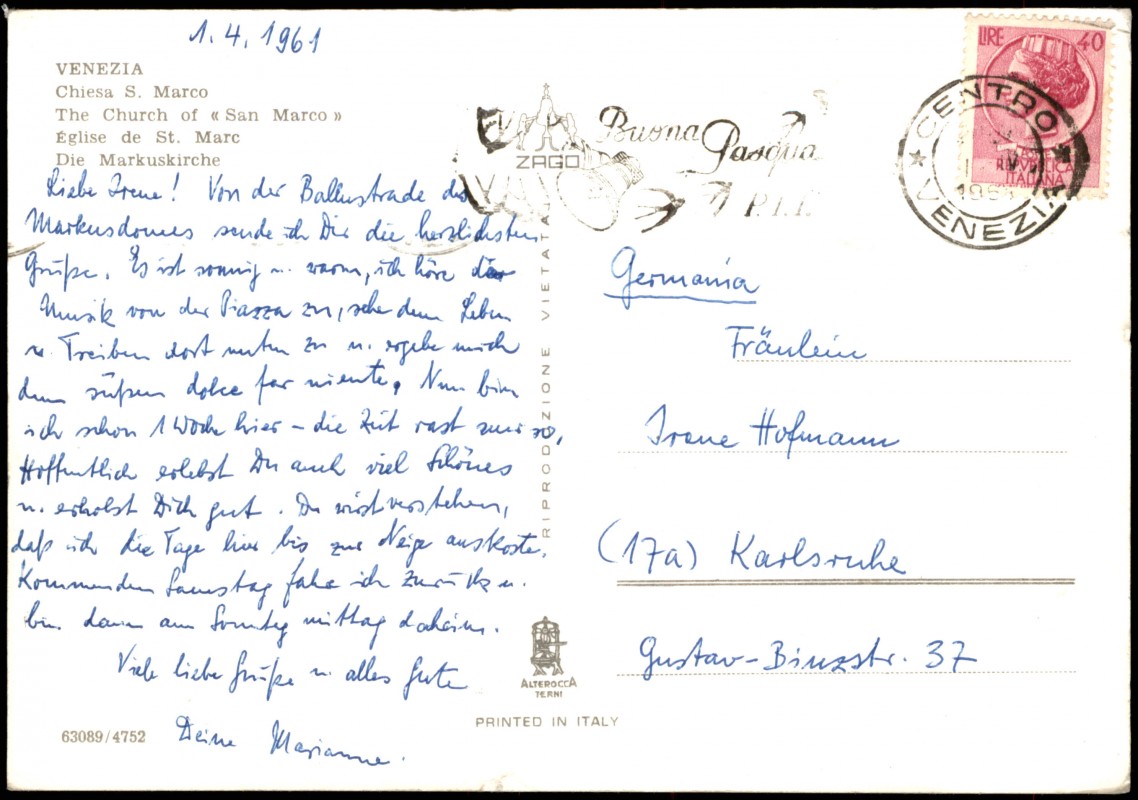 1.4.1961
VENEZIA
Chiesa S. Marco
The Church of « San Marco »
Église de St. Marc
Die Markuskirche
Liebe Irene! Von der Ballustrade des
Markusdomes sende ich Dir die herzlichsten
Grüße. Es ist sonnig u. warm, ich höre der
Musik von der Piazza zu, sehe dem Leben
u. Treiben dort unten zu u. ergebe mich
dem süßen dolce far niente. Nun bin
ich schon 1 Woche hier – die Zeit rast nur so,
Hoffentlich erlebst Du auch viel Schönes
u. erholst Dich gut. Du wirst verstehen,
daß ich die Tage hier bis zur Neige auskoste.
Kommenden Samstag fahre ich zurück u.
bin dann am Sonntag mittag daheim.
Viele liebe Grüße u. alles Gute
Deine Marianne.
63089/4752
RIPRODUZIONE VIETATA
ALTEROCCA
TERNI
PRINTED IN ITALY
ZAGO
Buona Pasqua
LIRE 40
REPVBBLICA
ITALIANA
CENTRO
VENEZIA
Germania
Fräulein
Irene Hofmann
(17a) Karlsruhe
Gustav-Binzstr. 37